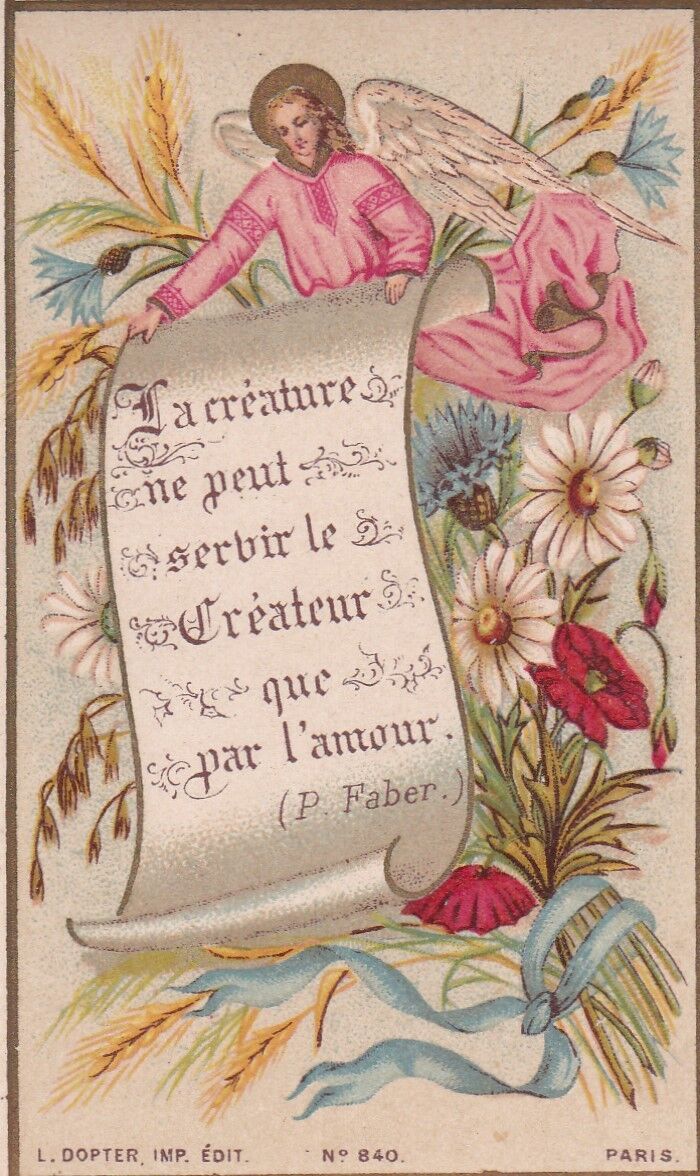 La créature
ne peut
servir le
Créateur
que
par l'amour.
(P. Faber.)
L. DOPTER, IMP. ÉDIT. Nº 840. PARIS.